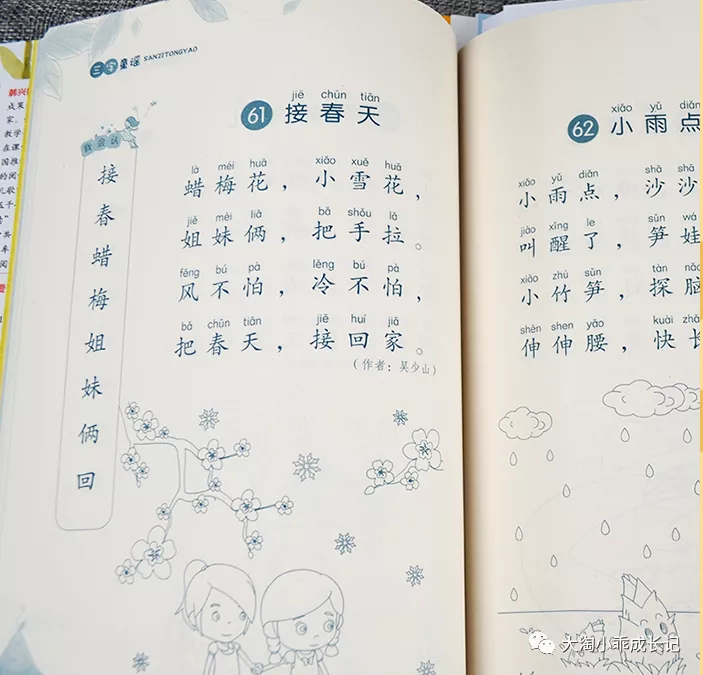 三字童谣 SANZITONGYAO
我会认
接
春
蜡
梅
姐
妹
俩
回
jiē chūn tiān
61 接春天
là méi huā xiǎo xuě huā
蜡梅花，小雪花，
jiě mèi liǎ bǎ shǒu lā
姐妹俩，把手拉。
fēng bú pà lěng bú pà
风不怕，冷不怕，
bǎ chūn tiān jiē huí jiā
把春天，接回家。
（作者：吴少山）
xiǎo yǔ diǎn
62 小雨点
xiǎo yǔ diǎn shā shā
小雨点，沙沙
jiào xǐng le sǔn wá
叫醒了，笋娃
xiǎo zhú sǔn tàn nǎo
小竹笋，探脑
shēn shen yāo kuài
伸伸腰，快长
大淘小乖成长记